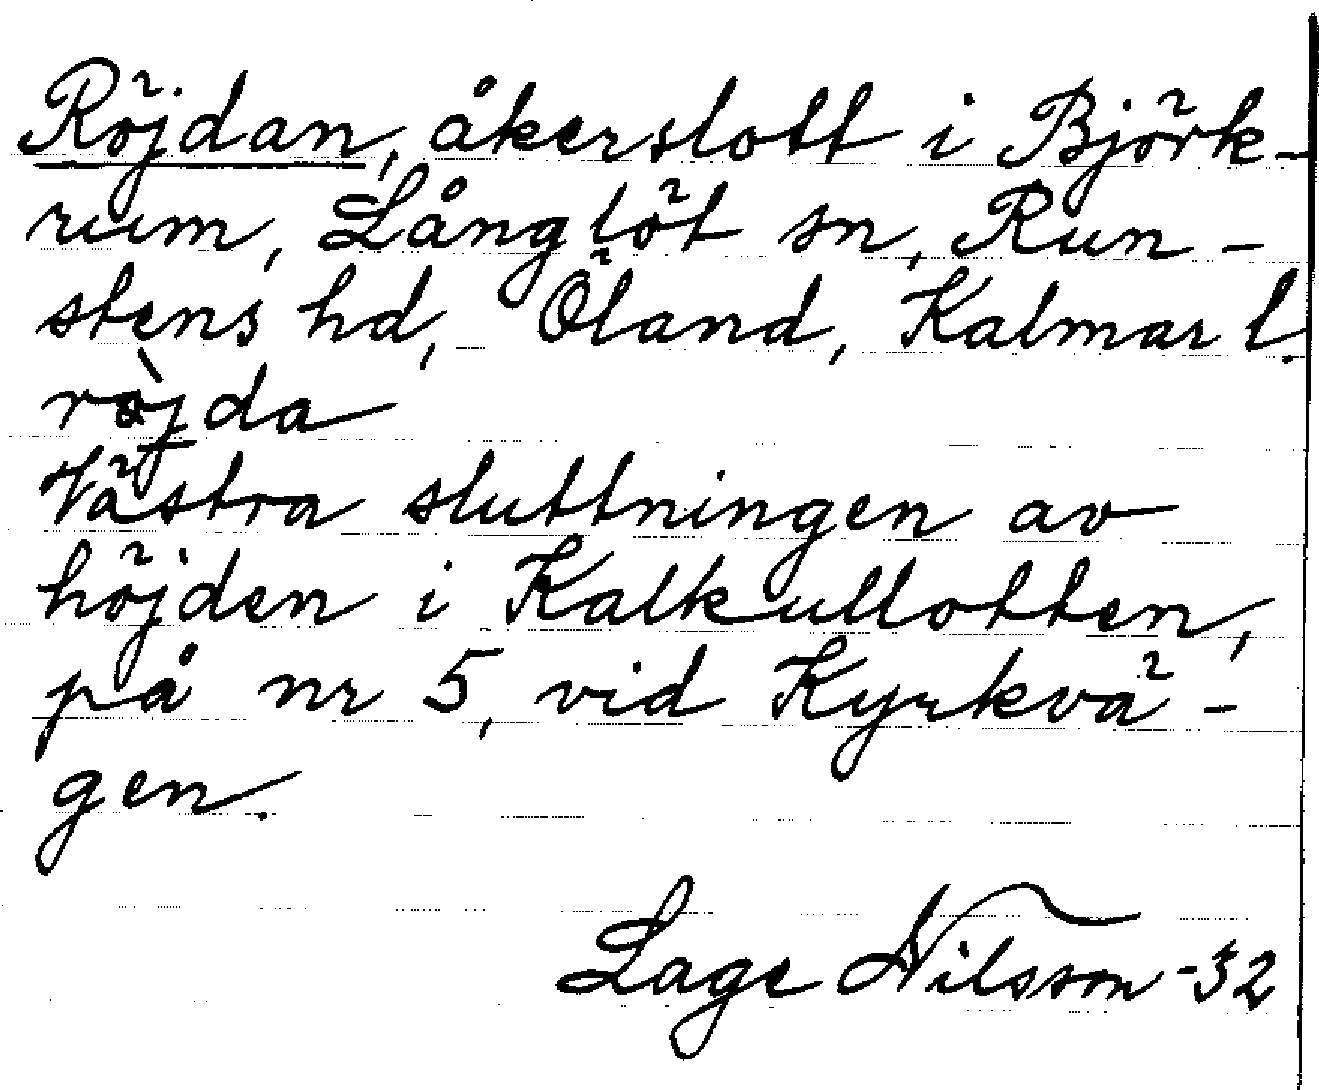 Röjdan, åkerslott i Björk-
rum, Långlöt sn, Run-
stens hd, Öland, Kalmar l.
ròjda
Västra sluttningen av
höjden i Kalkullotten,
på nr 5, vid Kyrkvä-
gen.
Lage Nilsson -32